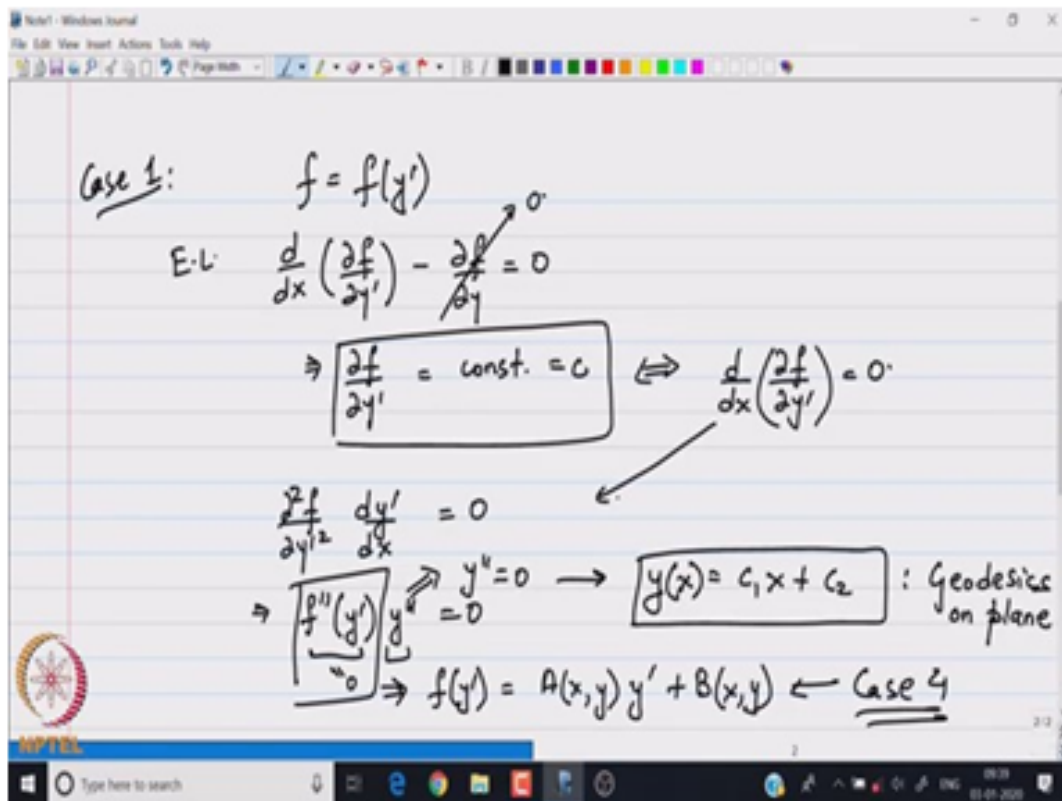 Note1 - Windows Journal
File Edit View Insert Actions Tools Help
Page Width B I
Case 1: f = f(y')
0.
E.L. d/dx (∂f/∂y') - ∂f/∂y = 0
⇒ ∂f/∂y' = const. = c ⇔ d/dx (∂f/∂y') = 0.
∂²f/∂y'² dy'/dx = 0
y'' = 0 → y(x) = c₁x + c₂ : Geodesics on plane
⇒ f''(y') y'' = 0
"0 ⇒ f(y') = A(x,y) y' + B(x,y) ← Case 4
NPTEL
2/2
2
Type here to search
ENG
09:39
03-01-2020